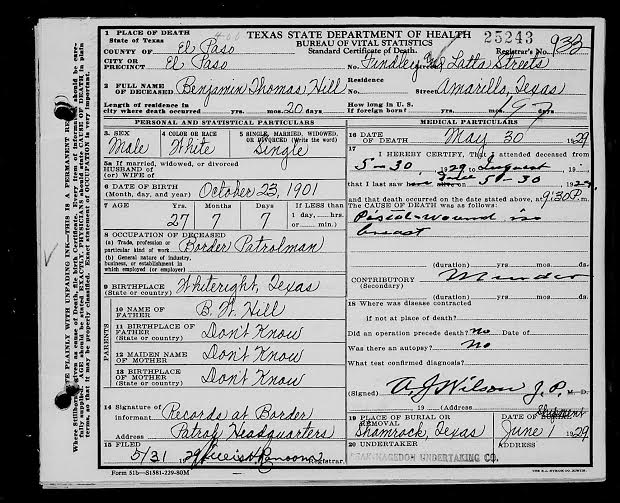 TEXAS STATE DEPARTMENT OF HEALTH
BUREAU OF VITAL STATISTICS
Standard Certificate of Death.
25243
Registrar's No. 932
1 PLACE OF DEATH
State of Texas
COUNTY OF El Paso
CITY OR PRECINCT El Paso Findley and Latta Streets
2 FULL NAME OF DECEASED Benjamin Thomas Hill Residence No. Street Amarillo, Texas
Length of residence in city where death occurred yrs. mos. 20 days How long in U. S. if foreign born? yrs. mos. days
PERSONAL AND STATISTICAL PARTICULARS
3. SEX Male
4 COLOR OR RACE White
5 SINGLE, MARRIED, WIDOWED, OR DIVORCED (Write the word) Single
5a If married, widowed, or divorced
HUSBAND of
(or) WIFE of
6 DATE OF BIRTH (Month, day, and year) October 23, 1901
7 AGE 27 7 7 If LESS than 1 day, hrs. or min.)
8 OCCUPATION OF DECEASED
(a) Trade, profession or particular kind of work Border Patrolman
(b) General nature of industry, business, or establishment in which employed (or employer)
9 BIRTHPLACE (State or country) Whiteright, Texas
PARENTS
10 NAME OF FATHER B. W. Hill
11 BIRTHPLACE OF FATHER (State or country) Don't Know
12 MAIDEN NAME OF MOTHER Don't Know
13 BIRTHPLACE OF MOTHER (State or country) Don't Know
14 Signature of informant Records at Border
Address Patrol Headquarters
15 FILED 5/31 29 Registrar.
Form 51b—S1581-229-80M
MEDICAL PARTICULARS
16 DATE OF DEATH May 30 1929
17 I HEREBY CERTIFY, That I attended deceased from
5-30, 1929 to Inquest 19
that I last saw 5-30 1929
and that death occurred on the date stated above, at 9:30 P m.
The CAUSE OF DEATH was as follows:
Pistol-wound in
breast
(duration) yrs. mos. ds.
CONTRIBUTORY (Secondary) Murder
(duration) yrs. mos. ds.
18 Where was disease contracted
if not at place of death?
Did an operation precede death? No Date of
Was there an autopsy? No
What test confirmed diagnosis?
(Signed) A J Wilson J. P. M. D.
19 (Address)
19 PLACE OF BURIAL OR REMOVAL Shamrock, Texas
DATE OF Shipment June 1 1929
20 UNDERTAKER UNDERTAKING CO.
ADDRESS